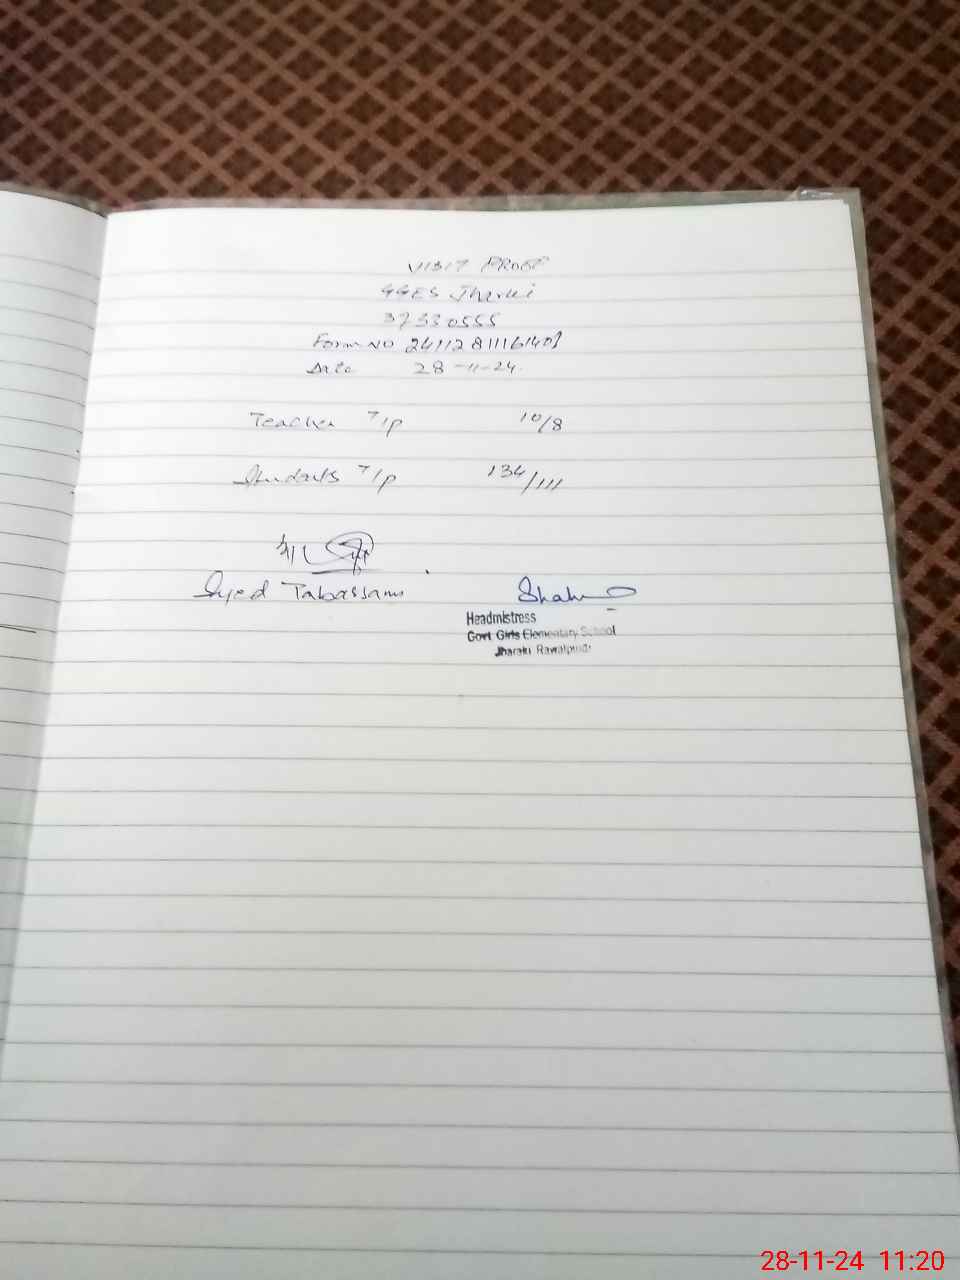 VISIT PROOF
GGES Jharki
37330555
Form NO 24112811161401
Date 28-11-24.
Teacher T/P 10/8
Students T/P 134/111
Syed Tabassam
Headmistress
Govt Girls Elementary School
Jharaki Rawalpindi
28-11-24 11:20